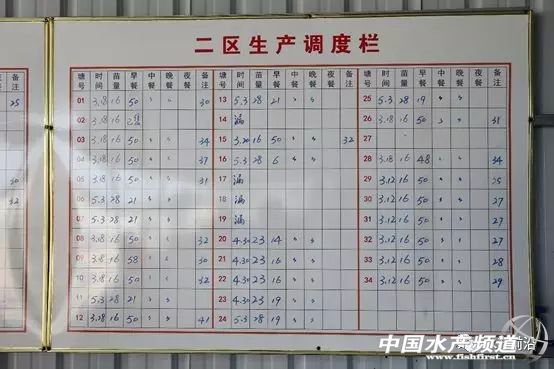 二区生产调度栏
塘号 时间 苗量 早餐 中餐 晚餐 夜餐 备注 塘号 时间 苗量 早餐 中餐 晚餐 夜餐 备注 塘号 时间 苗量 早餐 中餐 晚餐 夜餐 备注
01 3.18 16 50 〃 〃 30 13 5.3 28 21 〃 〃 25 5.3 28 19 〃 〃
02 3.18 16 已售 14 漏 26 3.18 16 50 〃 〃 31
03 3.18 16 50 〃 〃 34 15 3.20 16 50 〃 〃 32 27
04 3.18 16 50 〃 〃 37 16 5.3 28 6 〃 〃 28 3.18 16 48 〃 〃 34
05 3.18 16 50 〃 〃 31 17 漏 29 3.12 16 50 〃 〃 25
06 5.3 28 21 〃 〃 18 漏 30 3.12 16 50 〃 〃 27
07 5.3 28 21 〃 〃 19 漏 31 3.12 16 50 〃 〃 27
08 3.18 16 50 〃 〃 32 20 4.30 23 14 〃 〃 32 3.12 16 50 〃 〃 27
09 3.18 16 58 〃 〃 30 21 4.30 23 16 〃 〃 33 3.12 16 50 〃 〃 28
10 3.18 16 50 〃 〃 32 22 4.30 23 16 〃 〃 34 3.12 16 50 〃 〃 29
11 5.3 28 21 〃 〃 23 4.30 23 19 〃 〃
12 3.28 16 50 〃 〃 41 24 5.3 28 19 〃 〃
夜餐 备注
25
30
32
中国水产频道
www.fishfirst.cn
前沿